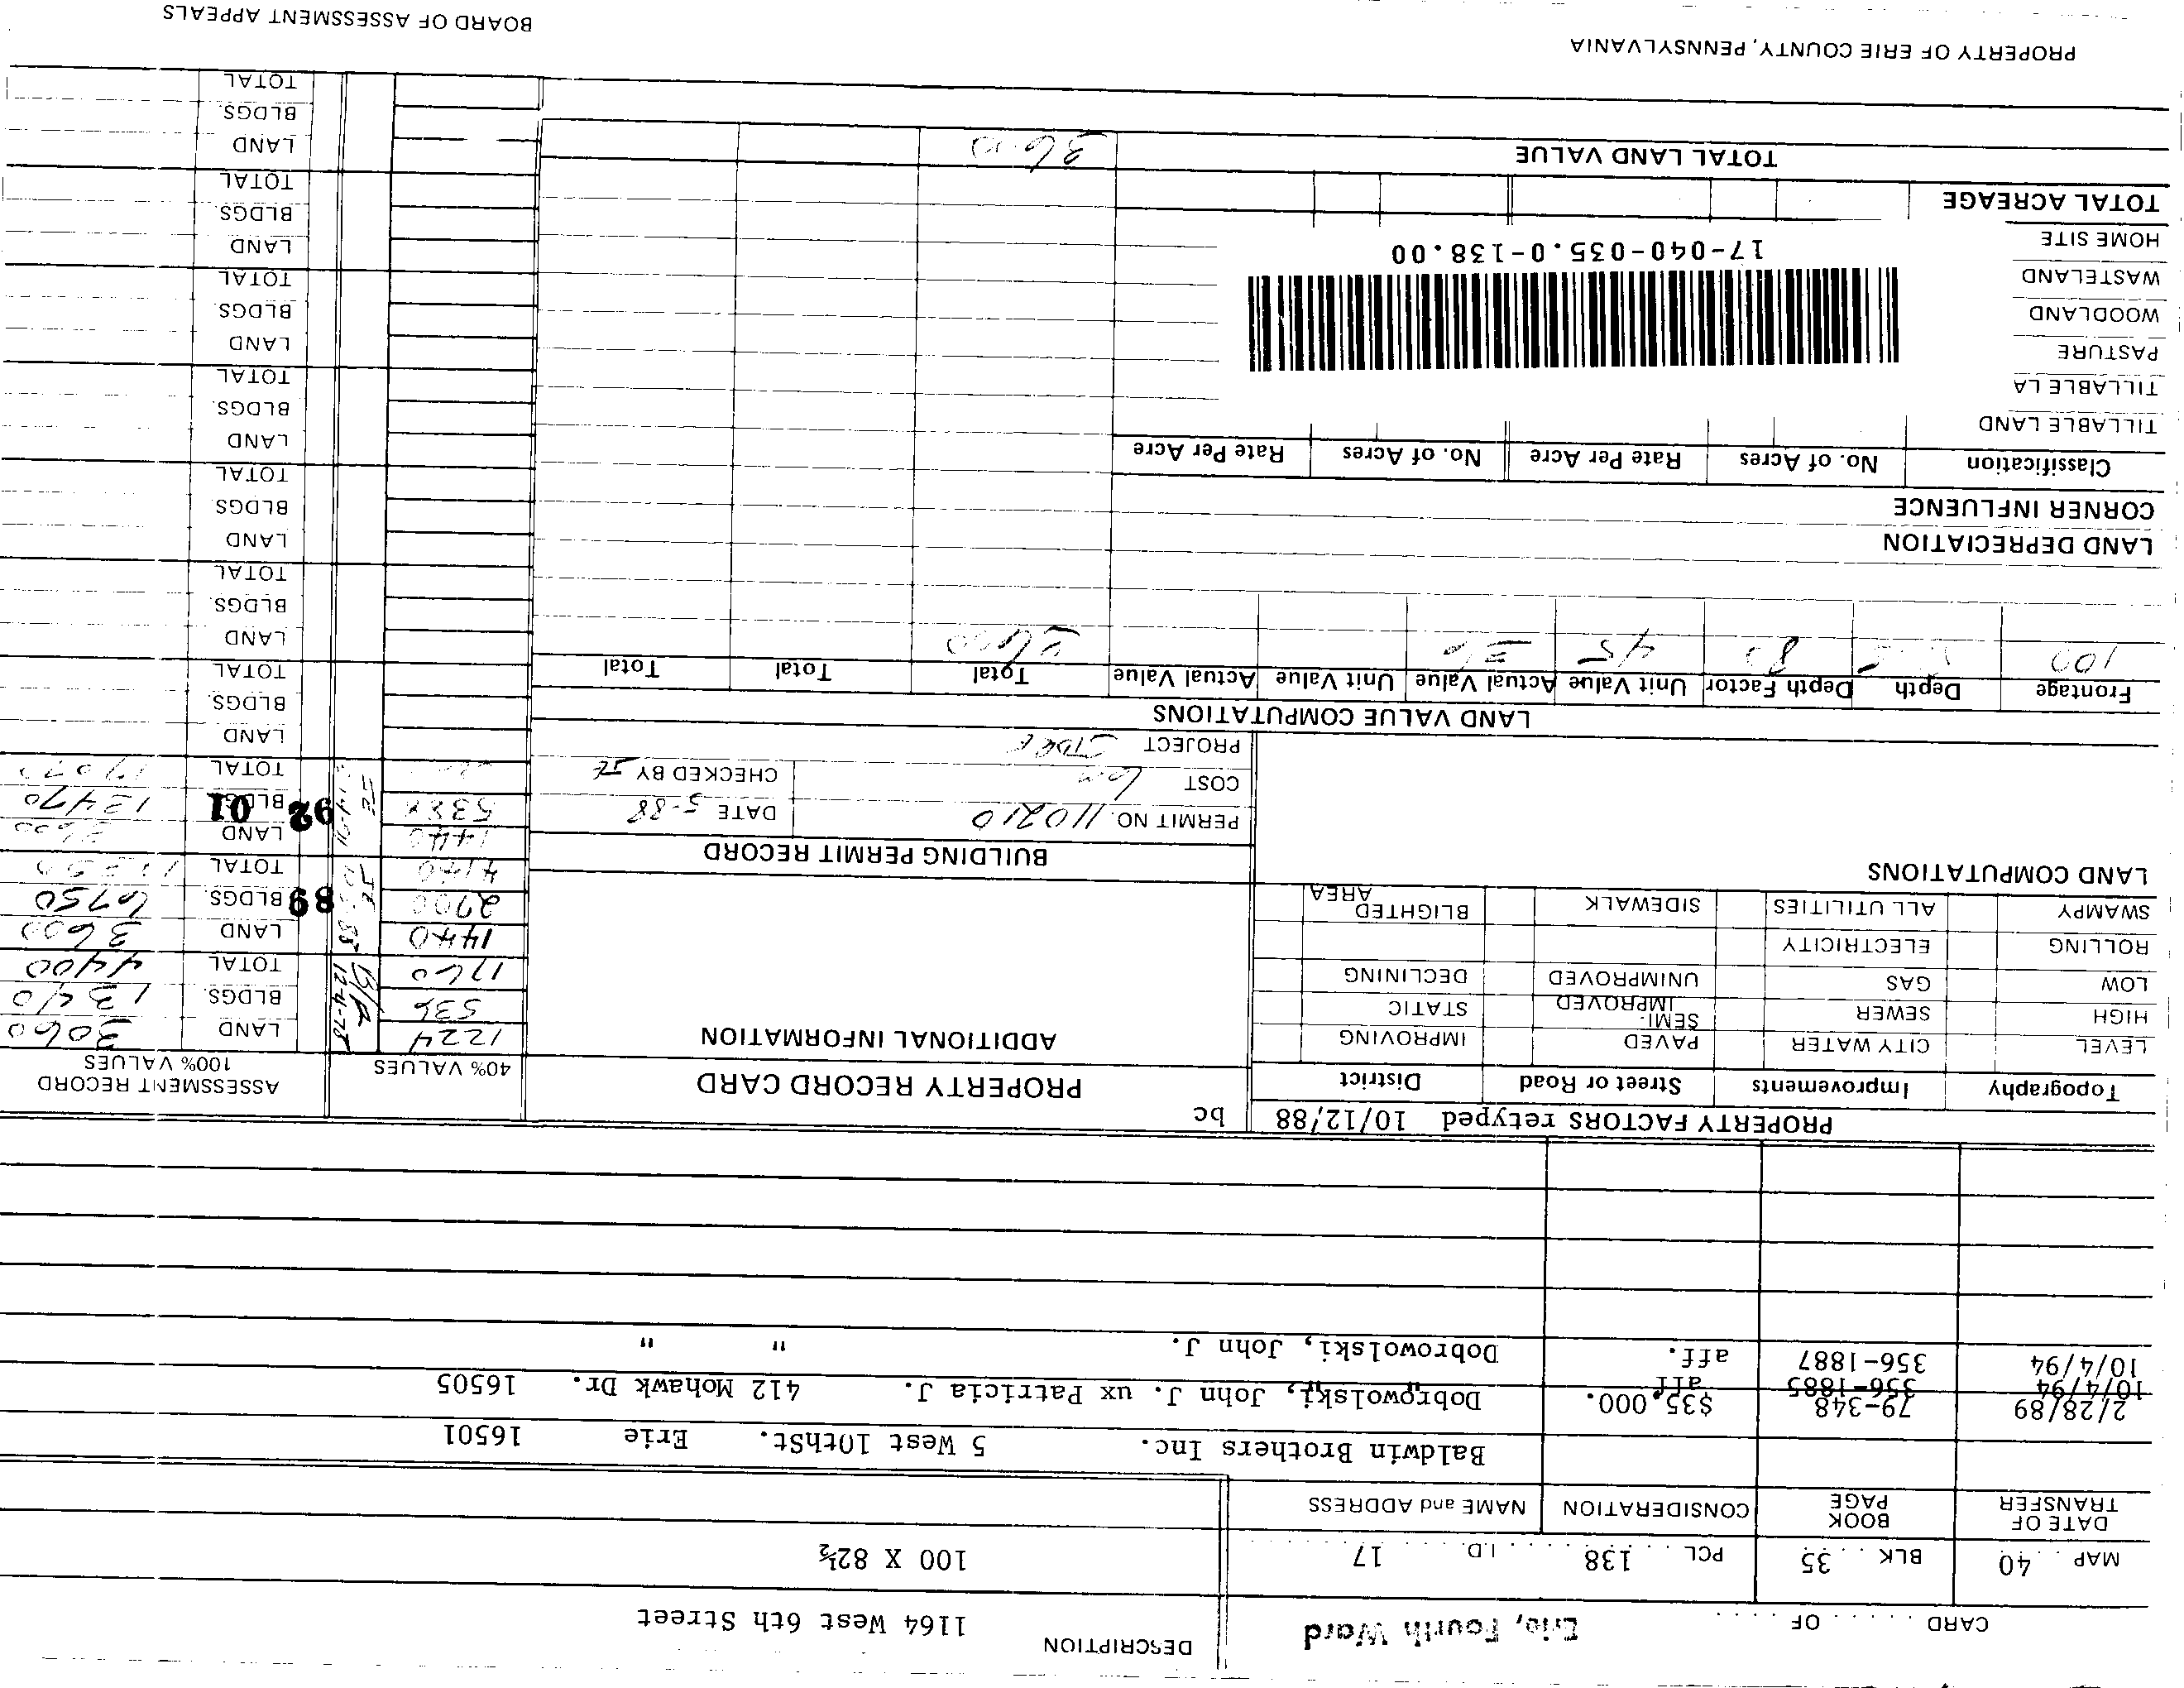 CARD ...... OF ....
Erie, Fourth Ward
DESCRIPTION
1164 West 6th Street
MAP 40 BLK 35 PCL 138 I.D. 17
100 X 82½
DATE OF TRANSFER BOOK PAGE CONSIDERATION NAME and ADDRESS
Baldwin Brothers Inc. 5 West 10thSt. Erie 16501
2/28/89 79-348 $35,000. Dobrowolski, John J. ux Patricia J. 412 Mohawk Dr. 16505
10/4/94 356-1885 aff " "
10/4/94 356-1887 aff. Dobrowolski, John J. " "
PROPERTY FACTORS retyped 10/12/88 bc
Topography Improvements Street or Road District
LEVEL CITY WATER PAVED IMPROVING
HIGH SEWER SEMI-IMPROVED STATIC
LOW GAS UNIMPROVED DECLINING
ROLLING ELECTRICITY
SWAMPY ALL UTILITIES SIDEWALK BLIGHTED AREA
LAND COMPUTATIONS
PROPERTY RECORD CARD
ADDITIONAL INFORMATION
BUILDING PERMIT RECORD
PERMIT NO. 110210 DATE 5-88
COST 6m CHECKED BY JE
PROJECT
40% VALUES ASSESSMENT RECORD 100% VALUES
1224 B/A 12-4-78 LAND 3060
536 BLDGS. 1340
1760 TOTAL 4400
1440 LAND 3600
2700 JE 89 BLDGS. 6750
4140 TOTAL
1440 LAND 3600
5388 JE 92 01 BLDGS. 13470
TOTAL 17070
LAND
BLDGS.
TOTAL
LAND
BLDGS.
TOTAL
LAND
BLDGS.
TOTAL
LAND
BLDGS.
TOTAL
LAND
BLDGS.
TOTAL
LAND
BLDGS.
TOTAL
LAND
BLDGS.
TOTAL
LAND VALUE COMPUTATIONS
Frontage Depth Depth Factor Unit Value Actual Value Unit Value Actual Value Total Total Total
100 80 45 36 3600
LAND DEPRECIATION
CORNER INFLUENCE
Classification No. of Acres Rate Per Acre No. of Acres Rate Per Acre
TILLABLE LAND
TILLABLE LA
PASTURE
WOODLAND
WASTELAND
HOME SITE
17-040-035.0-138.00
TOTAL ACREAGE
TOTAL LAND VALUE 3600
PROPERTY OF ERIE COUNTY, PENNSYLVANIA
BOARD OF ASSESSMENT APPEALS